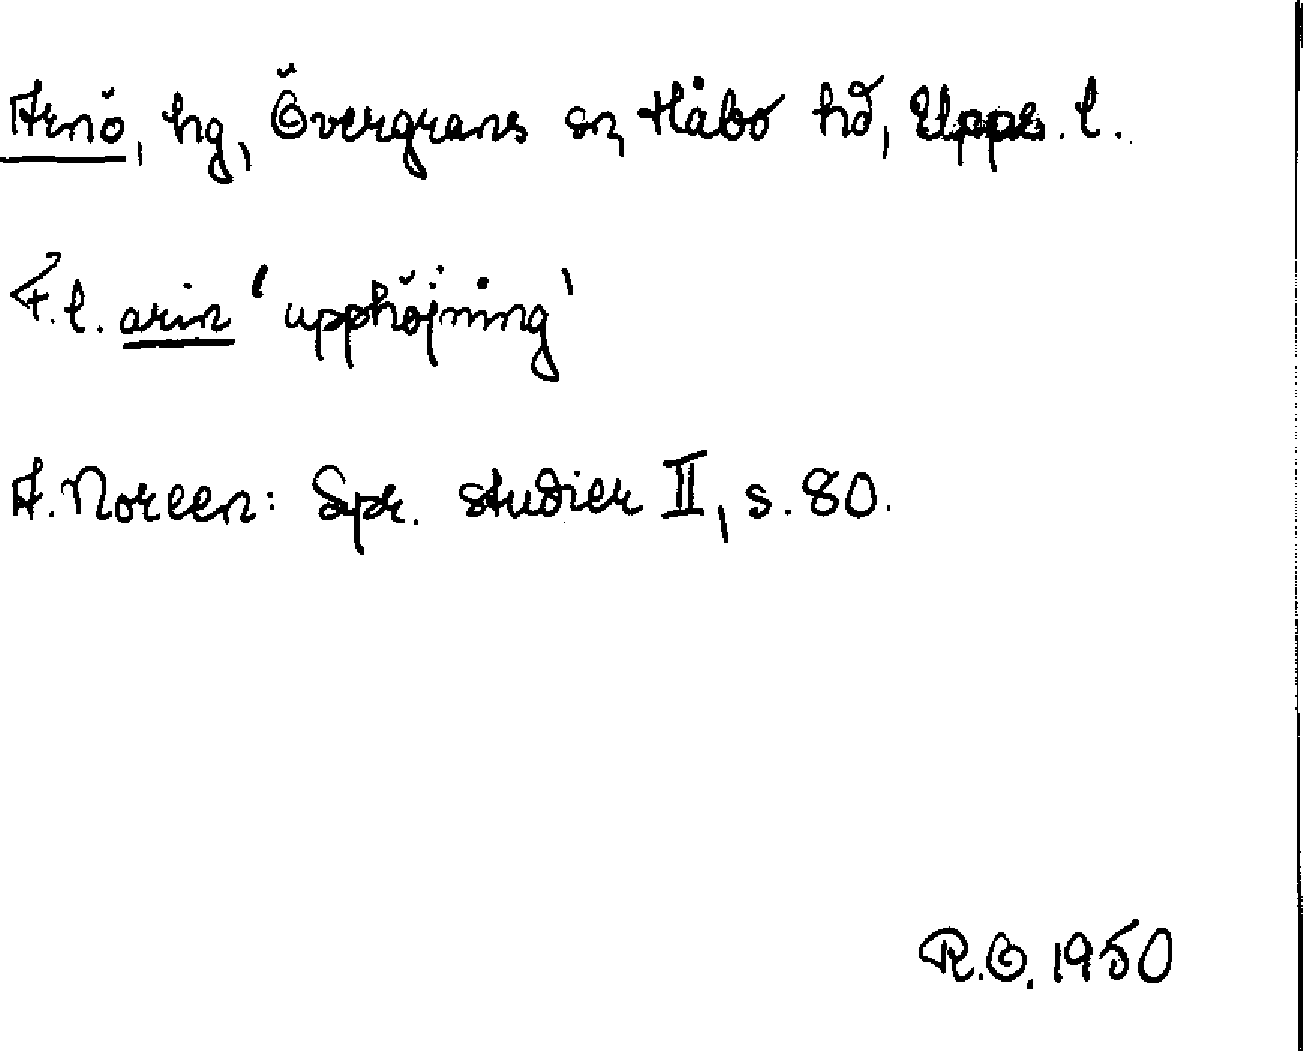 Arnö, hg, Övergrans sn, Håbo hd, Upps. l.
F.l. arin 'upphöjning'
A. Noreen: Spr. studier II, s. 80.
R.O. 1950